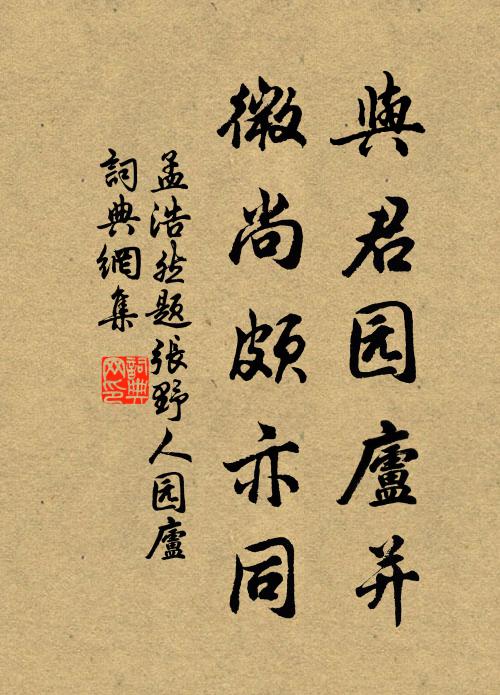 與君园廬并
微尚頗亦同
孟浩然题張野人园廬
詞典網集
詞典网印